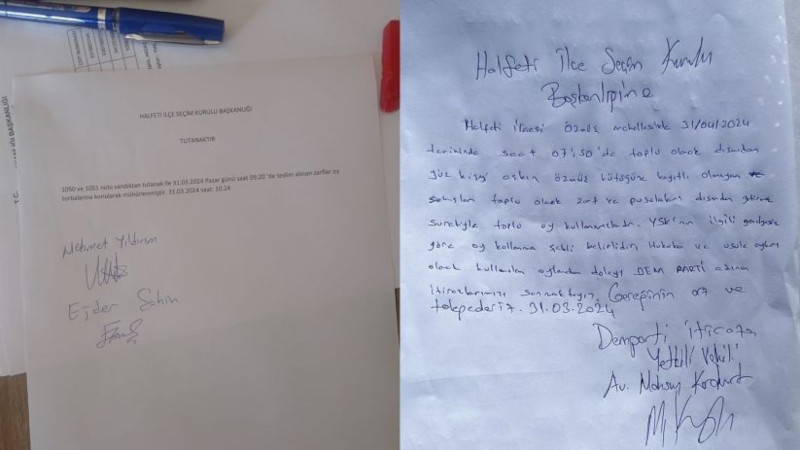 HALFETİ İLÇE SEÇİM KURULU BAŞKANLIĞI
TUTANAKTIR
1050 ve 1051 nolu sandıktan tutanak ile 31.03.2024 Pazar günü saat 09.20 'de teslim alınan zarflar oy
torbalarına konularak mühürlenmiştir. 31.03.2024 saat: 10.24
Mehmet Yıldırım
Ejder Şahin
BAŞKANLIĞI
Halfeti İlçe Seçim Kurulu
Başkanlığına
Halfeti ilçesi özmüş mahallesinde 31/04/2024
tarihinde saat 07:50'de toplu olarak dışarıdan
yüz kişiyi aşkın özmüş kütüğüne kayıtlı olmayan
şahısların toplu olarak zarf ve pusulaları dışarıdan
suretiyle toplu oy kullanmaktadır. YSK'nın ilgili
göre oy kullanma şekli bellidir. Hukuka ve usule aykırı
olarak kullanılan oylardan dolayı DEM PARTİ adına
itirazlarımızı sunmaktayız. Gereğinin arz ve
talep ederiz. 31.03.2024
Demparti itiraza
Yetkili Vekili
Av.